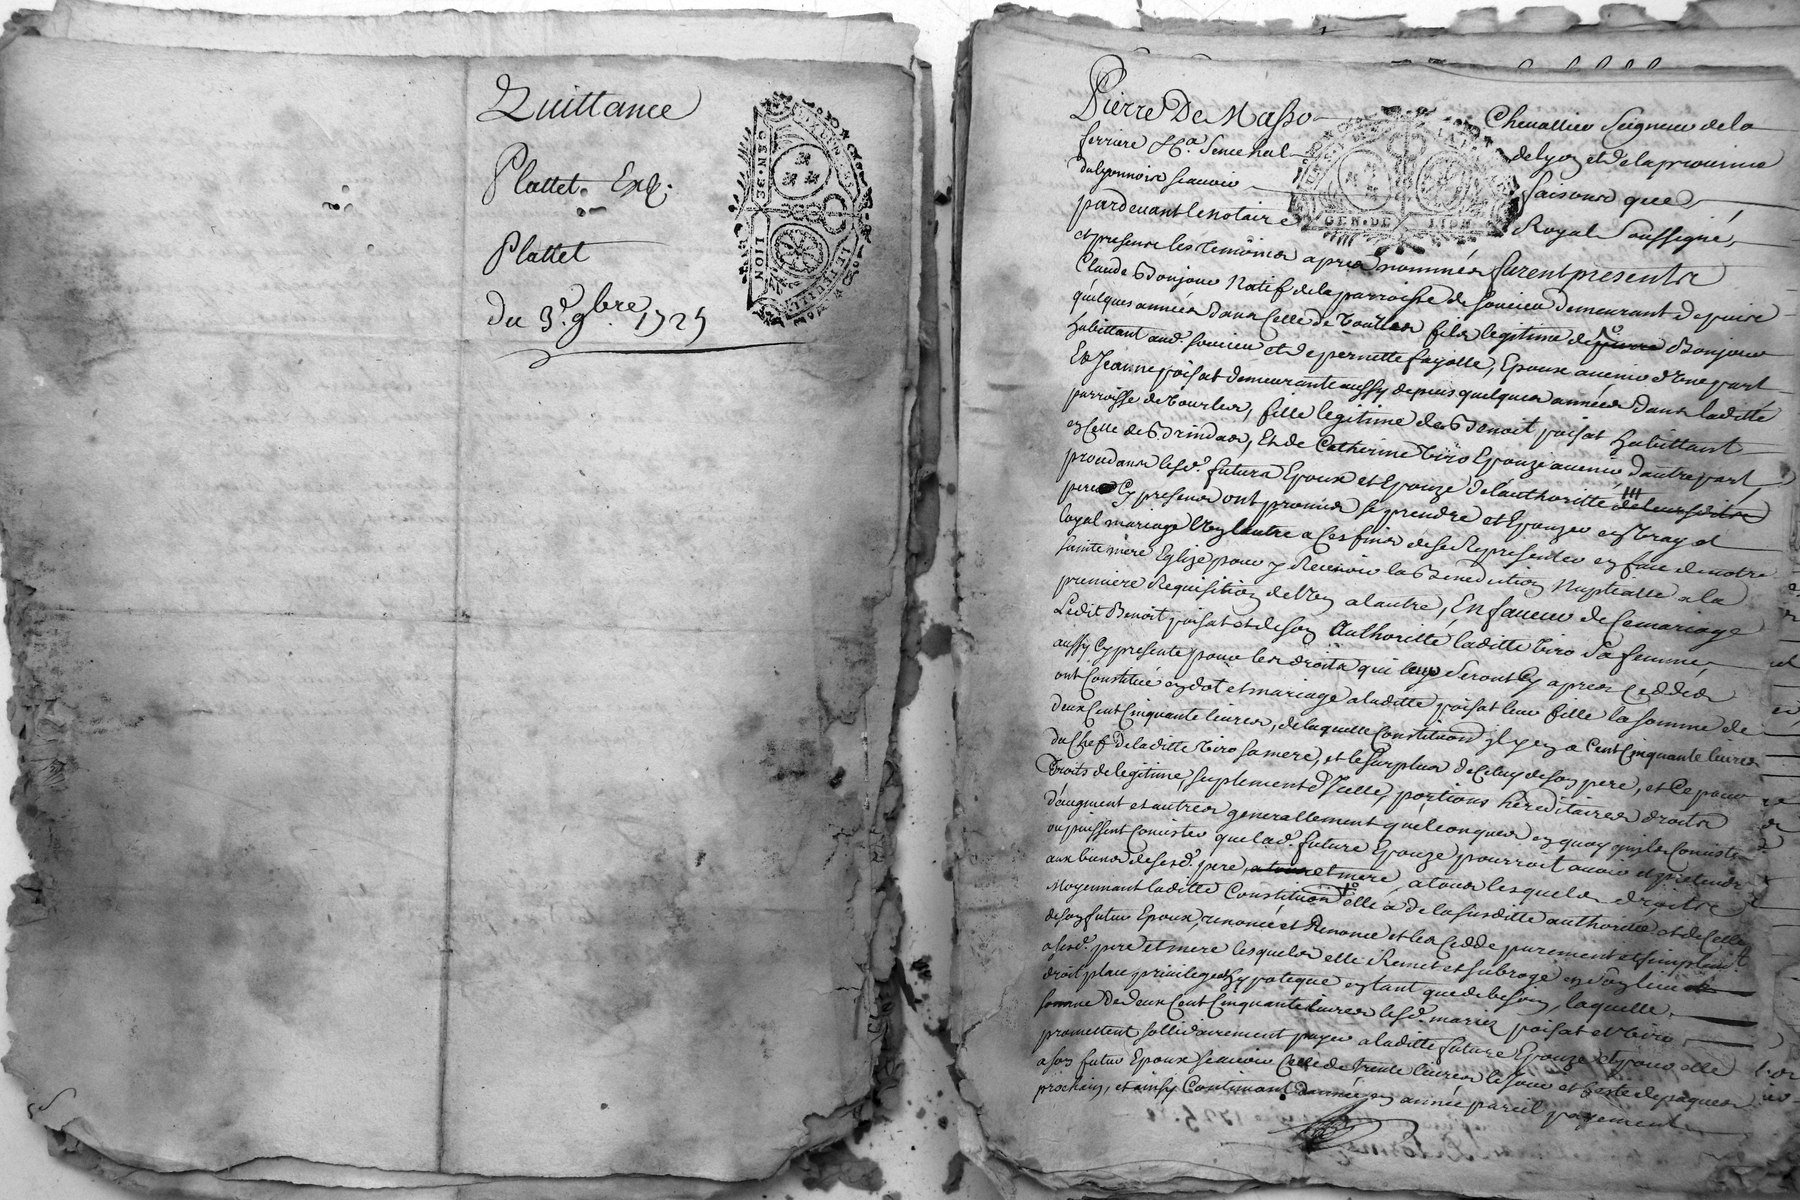 Quittance
Plattet Exq.
Plattet
du 3e. 9bre 1725
GEN·DE
LION
Pierre De Masso Chevallier Seigneur de la
ferriere &a. Senechal de lyon et de la province
du lyonnois scavoir faisons que
pardevant le notaire Royal Soussigné,
GEN·DE LION
et presence les temoins apres nommés furent presents
Claude Bonjour Natif de la parroisse de Soucieu demeurant depuis
quelques années dans Celle de fils legitime de Bonjour
habittant aud. Soucieu et de pernette fayolle, Epoux avenir d'une part
Et Jeanne poisat demeurante aussy depuis quelques années dans laditte
parroisse de fille legitime de Benoit poisat habittant
en Celle de Brindas, Et de Catherine Tiro Epouze avenir d'autre part
proudans lesd. futurs Epoux et Epouze de l'authoritté de leursdits
peres Cy presens ont promis se prendre et Epouzer en vray et
loyal mariage l'un l'autre a Ces fins de se Representer en face de notre
Sainte mere Eglize pour y Recevoir la Benediction Nuptialle a la
premiere Requisition de l'un a l'autre, En faveur de Ce mariage
Ledit Benoit poisat et de son Authoritté laditte Tiro Sa femme
aussy Cy presente pour les droits qui leurs Seront Cy apres Ceddés
ont Constitué en dot et mariage a laditte poisat leur fille la somme de
deux Cent Cinquante livres, de laquelle Constitution il y en a Cent Cinquante livres
du Chef de laditte Tiro Sa mere, et le Surplus de Celuy de son pere, et Ce pour
droits de legitime, suplement d'Icelle, portions hereditaires droits
d'augment et autres generallement quelconques en quoy qu'ils Consiste
ou puissent Consister que lad. future Epouze pourroit avoir et pretendre
aux biens de sesd. pere, et mere, a tous lesquels droits
Moyennant laditte Constitution elle a de la susditte authoritté et de Celle
de son futur Epoux, renoncé et Renonce et les Cedde purement et simplemt.
a sesd. pere et mere lesquels elle Remet et subroge en son lieu
droit place privilege et hypoteque en tant que de besoin, laquelle
somme de deux Cent Cinquante livres lesd. mariez poisat et Tiro
promettent sollidairement payer a laditte future Epouze et pour elle
a son futur Epoux scavoir Celle de trente livres le Jour et feste de paques
prochain, et ainsy Continuant d'année en année pareil payement